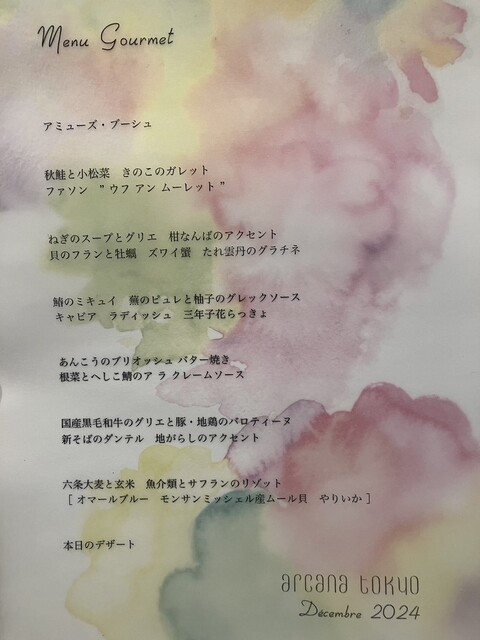 Menu Gourmet
アミューズ・ブーシュ
秋鮭と小松菜　きのこのガレット
ファソン　" ウフ アン ムーレット "
ねぎのスープとグリエ　柑なんばのアクセント
貝のフランと牡蠣　ズワイ蟹　たれ雲丹のグラチネ
鰆のミキュイ　蕪のピュレと柚子のグレックソース
キャビア　ラディッシュ　三年子花らっきょ
あんこうのブリオッシュ バター焼き
根菜とへしこ鯖のア ラ クレームソース
国産黒毛和牛のグリエと豚・地鶏のバロティーヌ
新そばのダンテル　地がらしのアクセント
六条大麦と玄米　魚介類とサフランのリゾット
［ オマールブルー　モンサンミッシェル産ムール貝　やりいか ］
本日のデザート
arcana tokyo
Décembre 2024